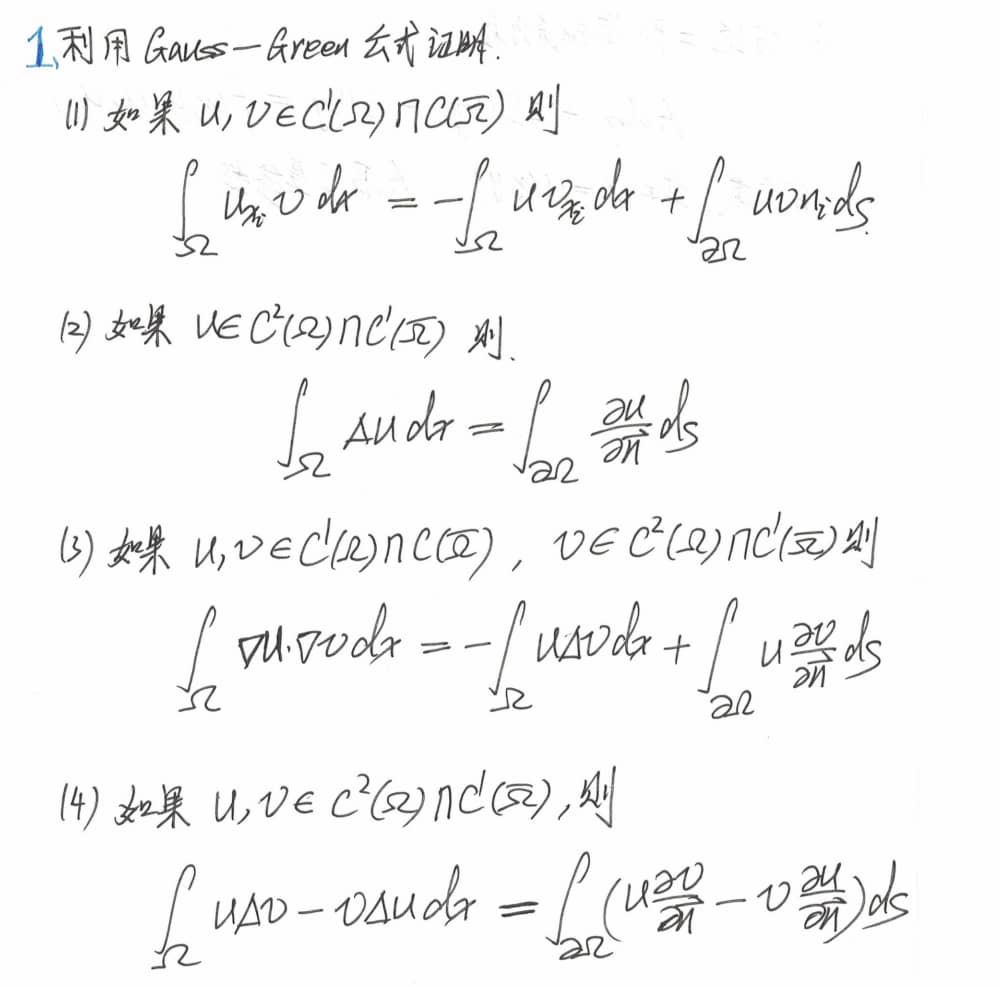 1、利用 Gauss-Green 公式证明.
(1) 如果 u, v∈C¹(Ω)∩C(Ω̅) 则
∫_Ω u_{x_i} v dx = -∫_Ω u v_{x_i} dx + ∫_{∂Ω} u v n_i ds.
(2) 如果 u∈C²(Ω)∩C¹(Ω̅) 则.
∫_Ω Δu dx = ∫_{∂Ω} ∂u/∂n⃗ ds
(3) 如果 u, v∈C¹(Ω)∩C(Ω̅), v∈C²(Ω)∩C¹(Ω̅) 则
∫_Ω ∇u·∇v dx = -∫_Ω uΔv dx + ∫_{∂Ω} u ∂v/∂n⃗ ds
(4) 如果 u, v∈C²(Ω)∩C¹(Ω̅), 则
∫_Ω uΔv - vΔu dx = ∫_{∂Ω} (u ∂v/∂n⃗ - v ∂u/∂n⃗) ds